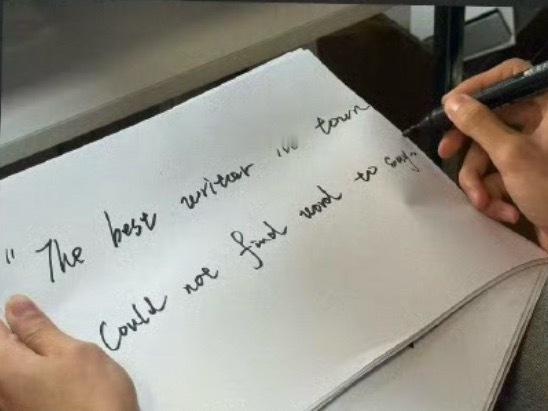 "The best writer in town
Could not find word to say.